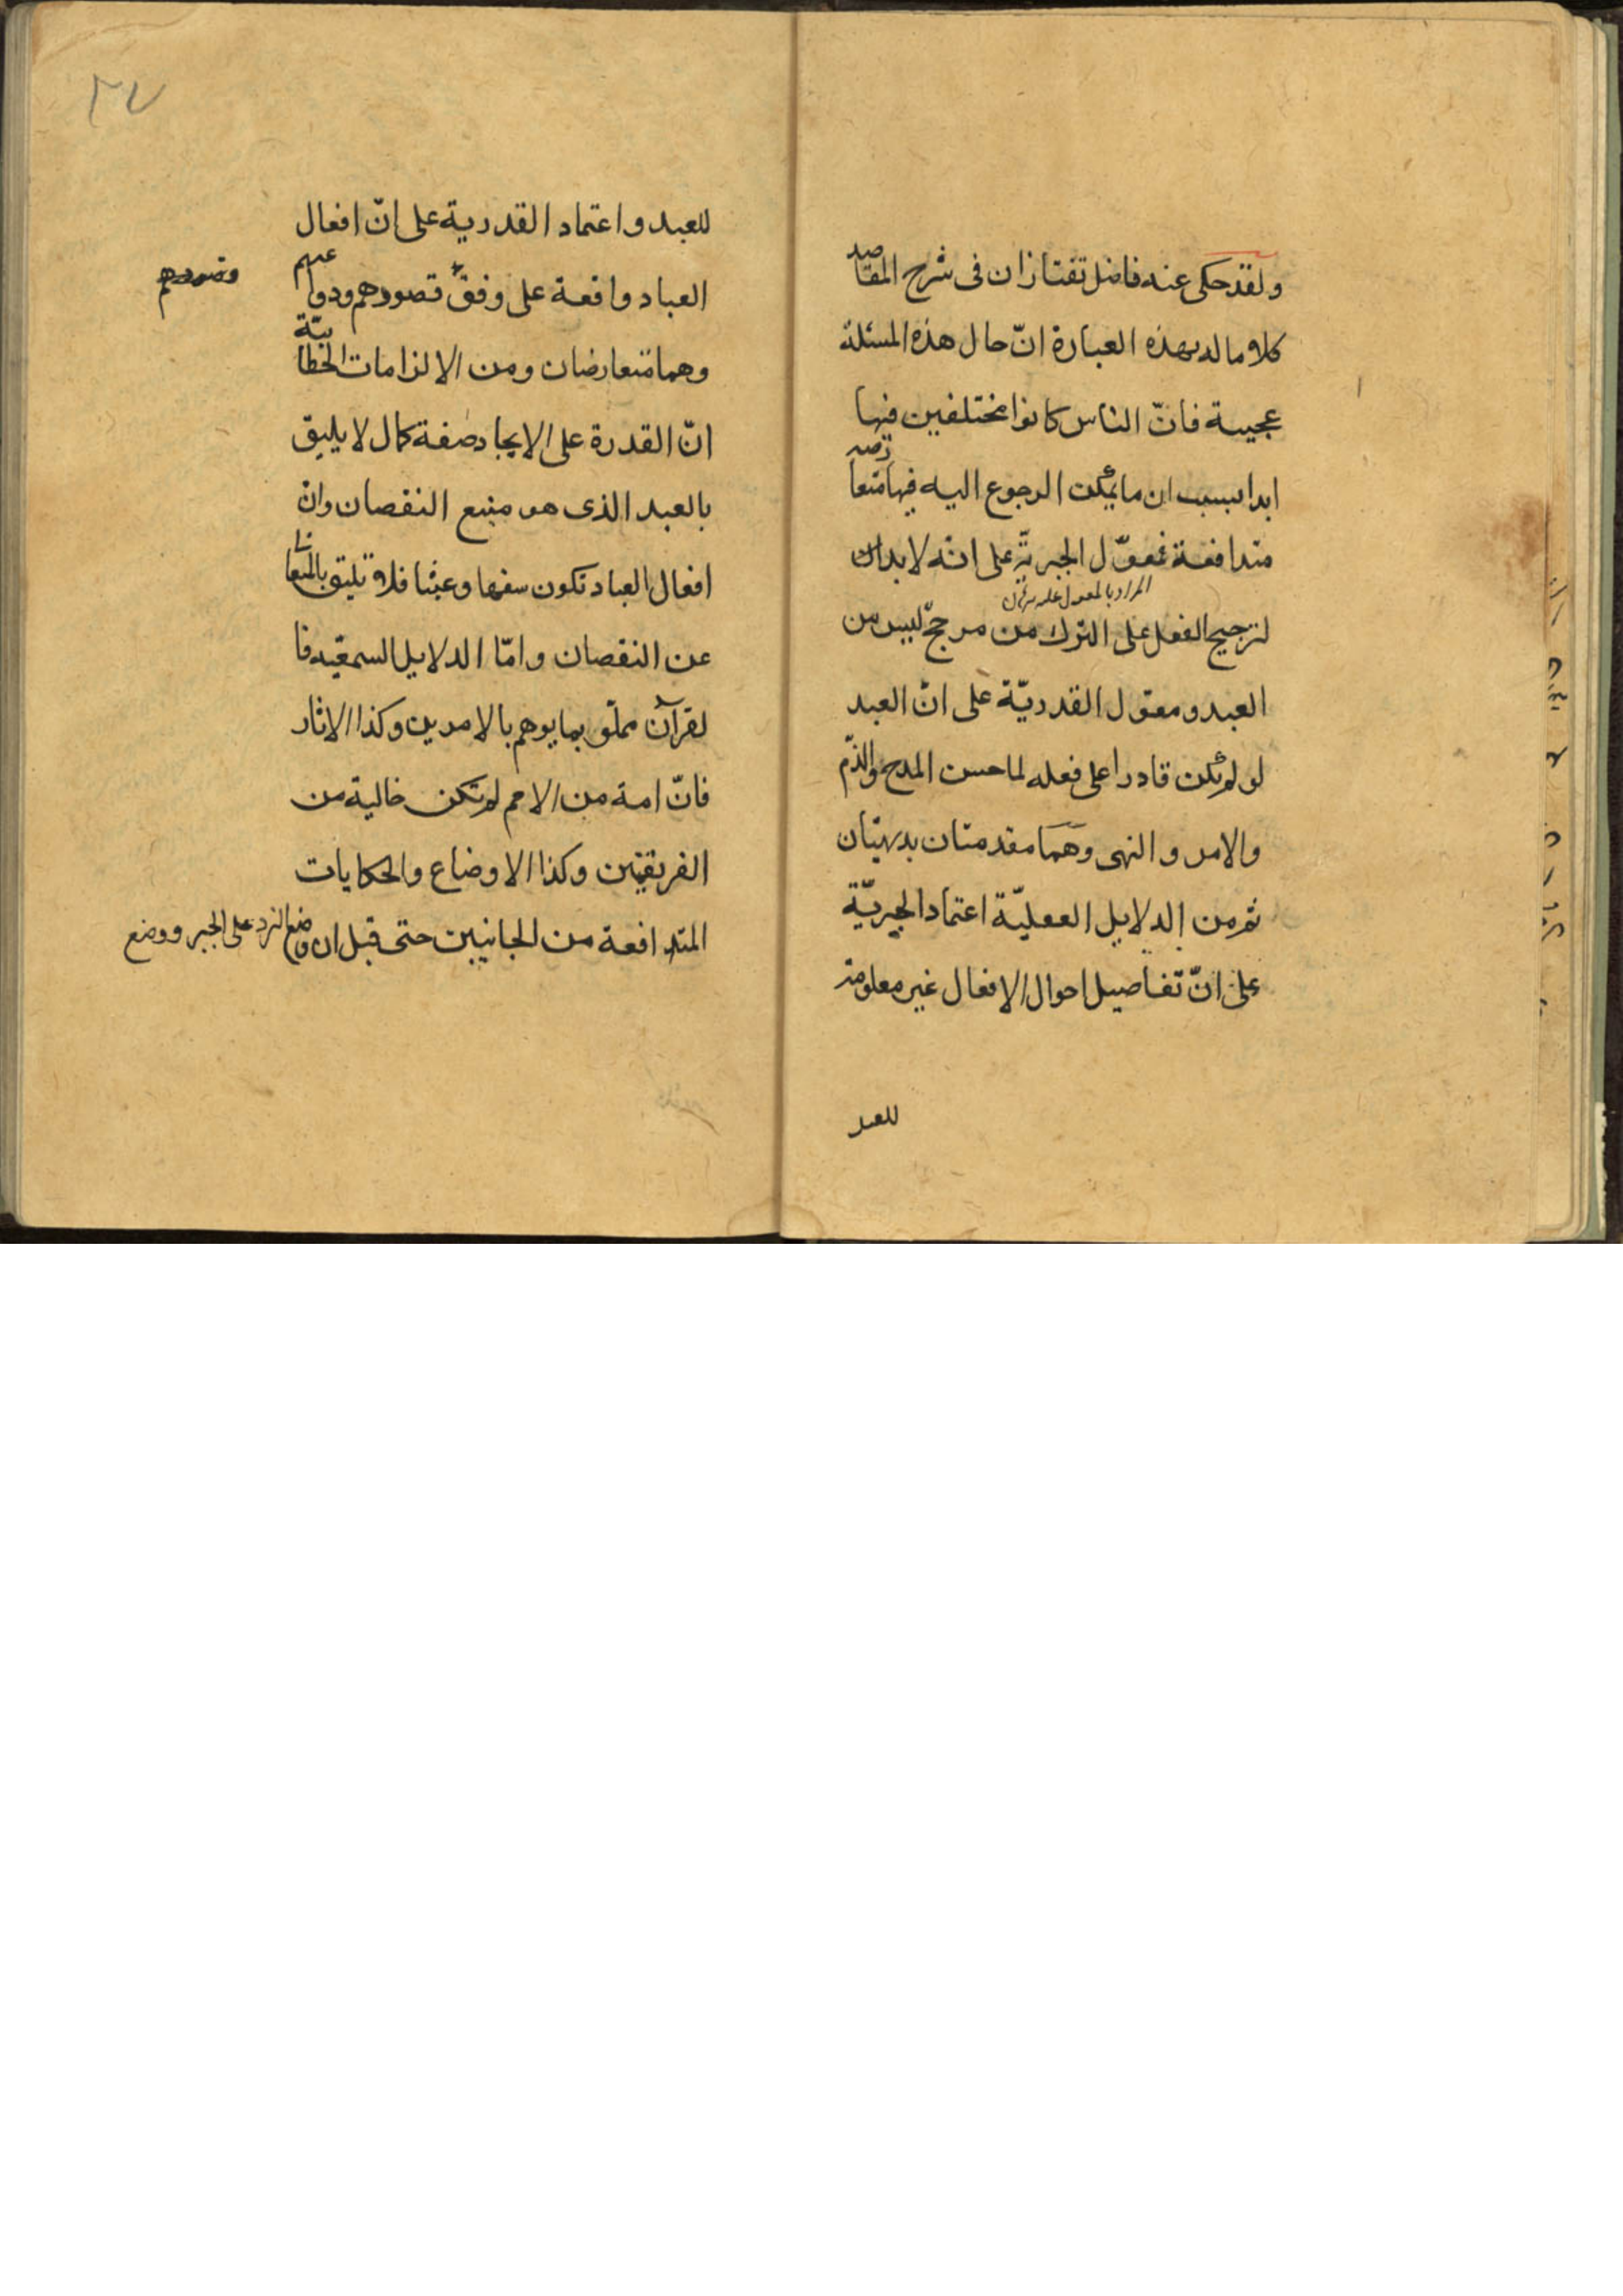 ولقد حكى عنه فاضل تفتازان فى شرح المقاصد
كلاما له بهذه العبارة انّ حال هذه المسئلة
عجيبة فانّ الناس كانوا مختلفين فيها
ابدا بسبب ان ما يمكن الرجوع اليه فيها متعارضة
متدافعة فمعوّل الجبريّة على انّه لابدان
المراد بالمعول عليه
لترجيح الفعل على الترك من مرجّح ليس من
العبد ومعوّل القدريّة على انّ العبد
لو لم يكن قادرا على فعله لما حسن المدح والذّم
والامر والنهى وهما مقدمتان بديهيّتان
ثم من الدلايل العقليّة اعتماد الجبريّة
على انّ تفاصيل احوال الافعال غير معلومة
للعبد
٢٧
للعبد واعتماد القدرية على انّ افعال
العباد واقعة على وفق قصودهم ودواعيهم
قصودهم
وهما متعارضان ومن الالزامات الخطابيّة
انّ القدرة على الايجاد صفة كمال لا يليق
بالعبد الذى هو منبع النقصان وانّ
افعال العباد تكون سفها وعبثا فلا تليق بالمتعالى
عن النقصان وامّا الدلايل السمعيّه فا
لقرآن مملّو بما يوهم بالامرين وكذا الاثار
فانّ امة من الامم لم تكن خالية من
الفريقين وكذا الاوضاع والحكايات
المتدافعة من الجانبين حتى قيل ان وضع النرد على الجبر ووضع